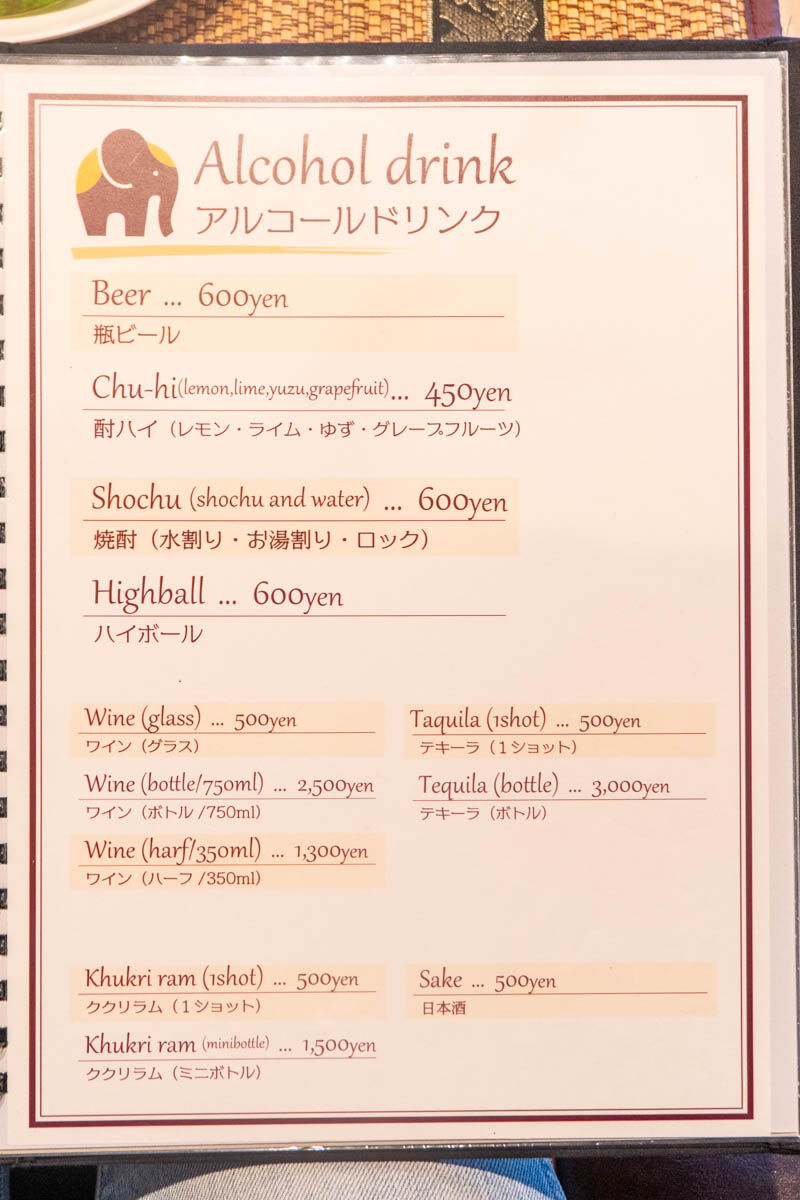 Alcohol drink
アルコールドリンク
Beer ... 600yen
瓶ビール
Chu-hi(lemon,lime,yuzu,grapefruit)... 450yen
酎ハイ（レモン・ライム・ゆず・グレープフルーツ）
Shochu (shochu and water) ... 600yen
焼酎（水割り・お湯割り・ロック）
Highball ... 600yen
ハイボール
Wine (glass) ... 500yen
ワイン（グラス）
Wine (bottle/750ml) ... 2,500yen
ワイン（ボトル /750ml）
Wine (harf/350ml) ... 1,300yen
ワイン（ハーフ /350ml）
Taquila (1shot) ... 500yen
テキーラ（１ショット）
Tequila (bottle) ... 3,000yen
テキーラ（ボトル）
Khukri ram (1shot) ... 500yen
ククリラム（１ショット）
Khukri ram (minibottle) ... 1,500yen
ククリラム（ミニボトル）
Sake ... 500yen
日本酒